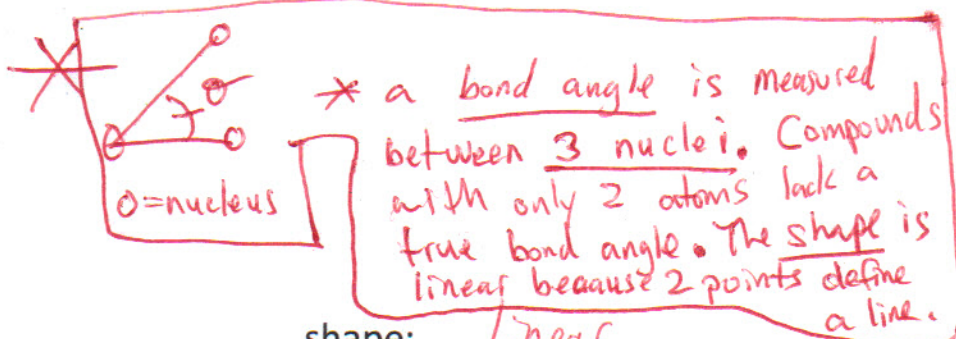 θ
* a bond angle is measured
between 3 nuclei. Compounds
with only 2 atoms lack a
true bond angle. The shape is
linear because 2 points define
a line.
O=nucleus
shape: linear